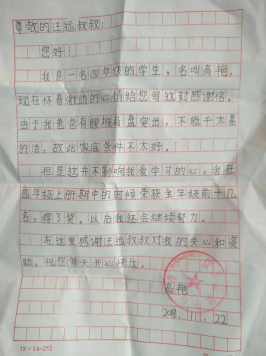 尊敬的汪远叔叔:
您好!
我是一名四年级的学生,名叫高艳,
现在怀着激动的心情给您写这封感谢信。
由于我爸爸有腰椎间盘突出,不能干太累
的活,故此家庭条件不太好。
但是这并不影响我爱学习的心,我在
四年级上册期中的时候荣获全年级前十几
名,得了奖。以后我还会继续努力。
在这里感谢汪远叔叔对我的关心和帮
助,祝您每天开心快乐。
高艳
2018.11.22
18×14=252